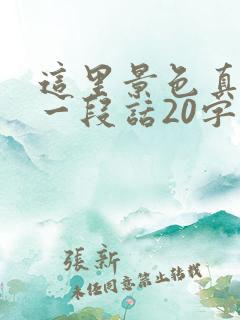 這里景色真
一段話20字
張新
未经同意禁止转载